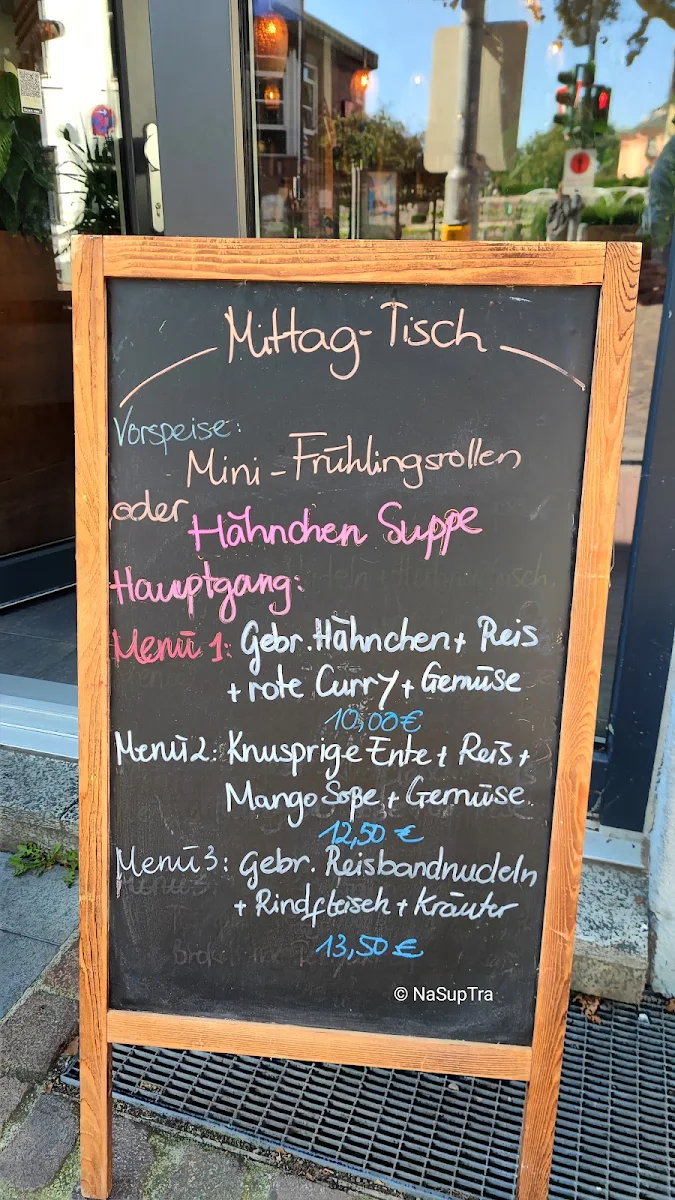 Mittag-Tisch
Vorspeise:
Mini-Frühlingsrollen
oder Hähnchen Suppe
Hauptgang:
Menü 1: Gebr. Hähnchen + Reis
+ rote Curry + Gemüse
10,00 €
Menü 2: Knusprige Ente + Reis +
Mango Soße + Gemüse
12,50 €
Menü 3: gebr. Reisbandnudeln
+ Rindfleisch + Kräuter
13,50 €
© NaSupTra